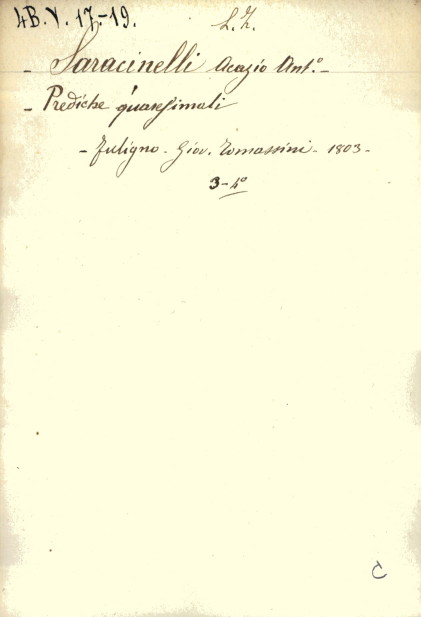 4B.V.17-19. L.Z.
- Saracinelli Acazio Ant.º -
- Prediche quaresimali
- Fuligno - Giov. Tomassini - 1803 -
3 - 4º
C